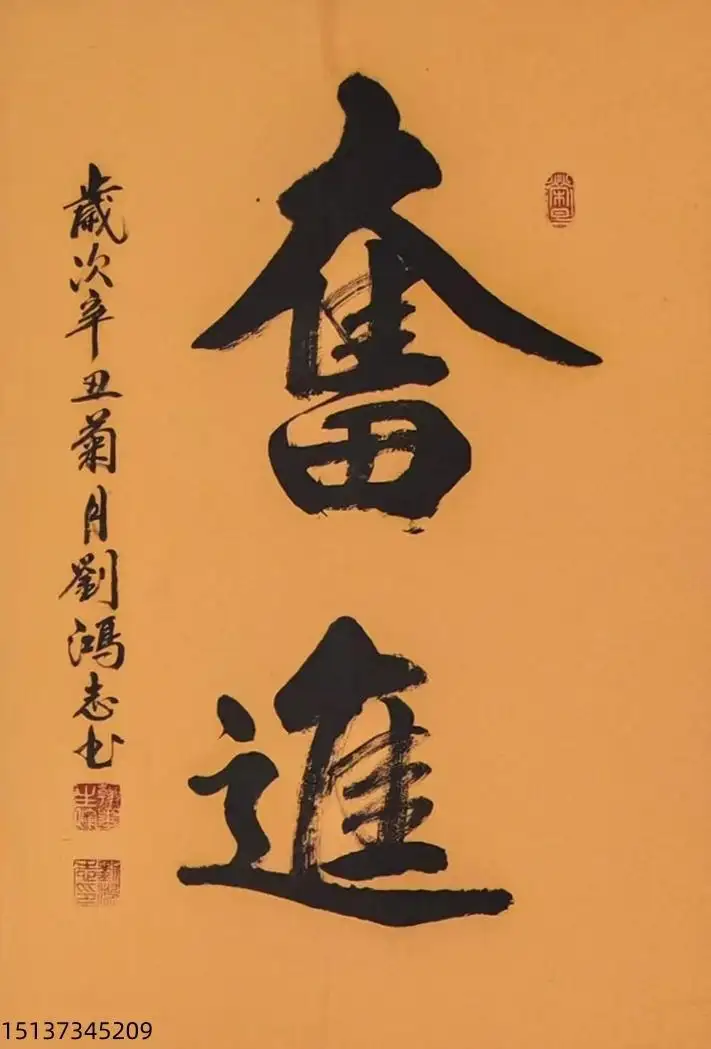 奮進
歲次辛丑菊月劉鴻志书
15137345209